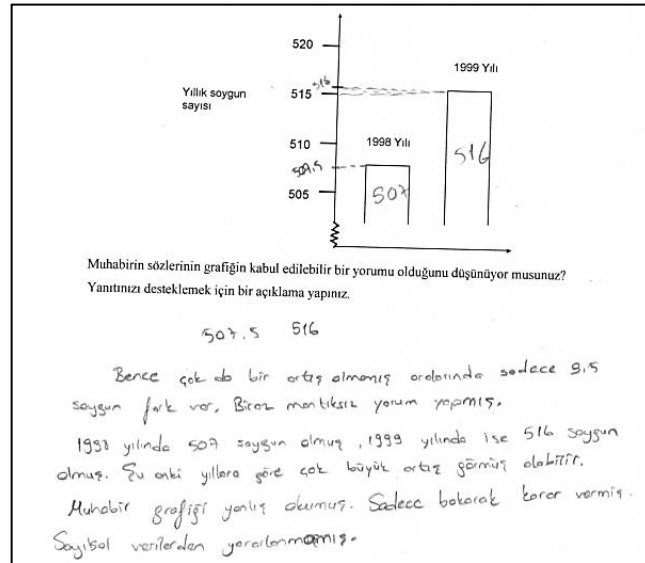 520
1999 Yılı
516
Yıllık soygun
sayısı
515
510
1998 Yılı
516
507.5
507
505
Muhabirin sözlerinin grafiğin kabul edilebilir bir yorumu olduğunu düşünüyor musunuz?
Yanıtınızı desteklemek için bir açıklama yapınız.
507.5 516
Bence çok da bir artış olmamış aralarında sadece 9.5
soygun fark var. Biraz mantıksız yorum yapmış.
1998 yılında 507 soygun olmuş, 1999 yılında ise 516 soygun
olmuş. Şu anki yıllara göre çok büyük artış görmüş olabilir.
Muhabir grafiği yanlış okumuş. Sadece bakarak karar vermiş.
Sayısal verilerden yararlanmamış.